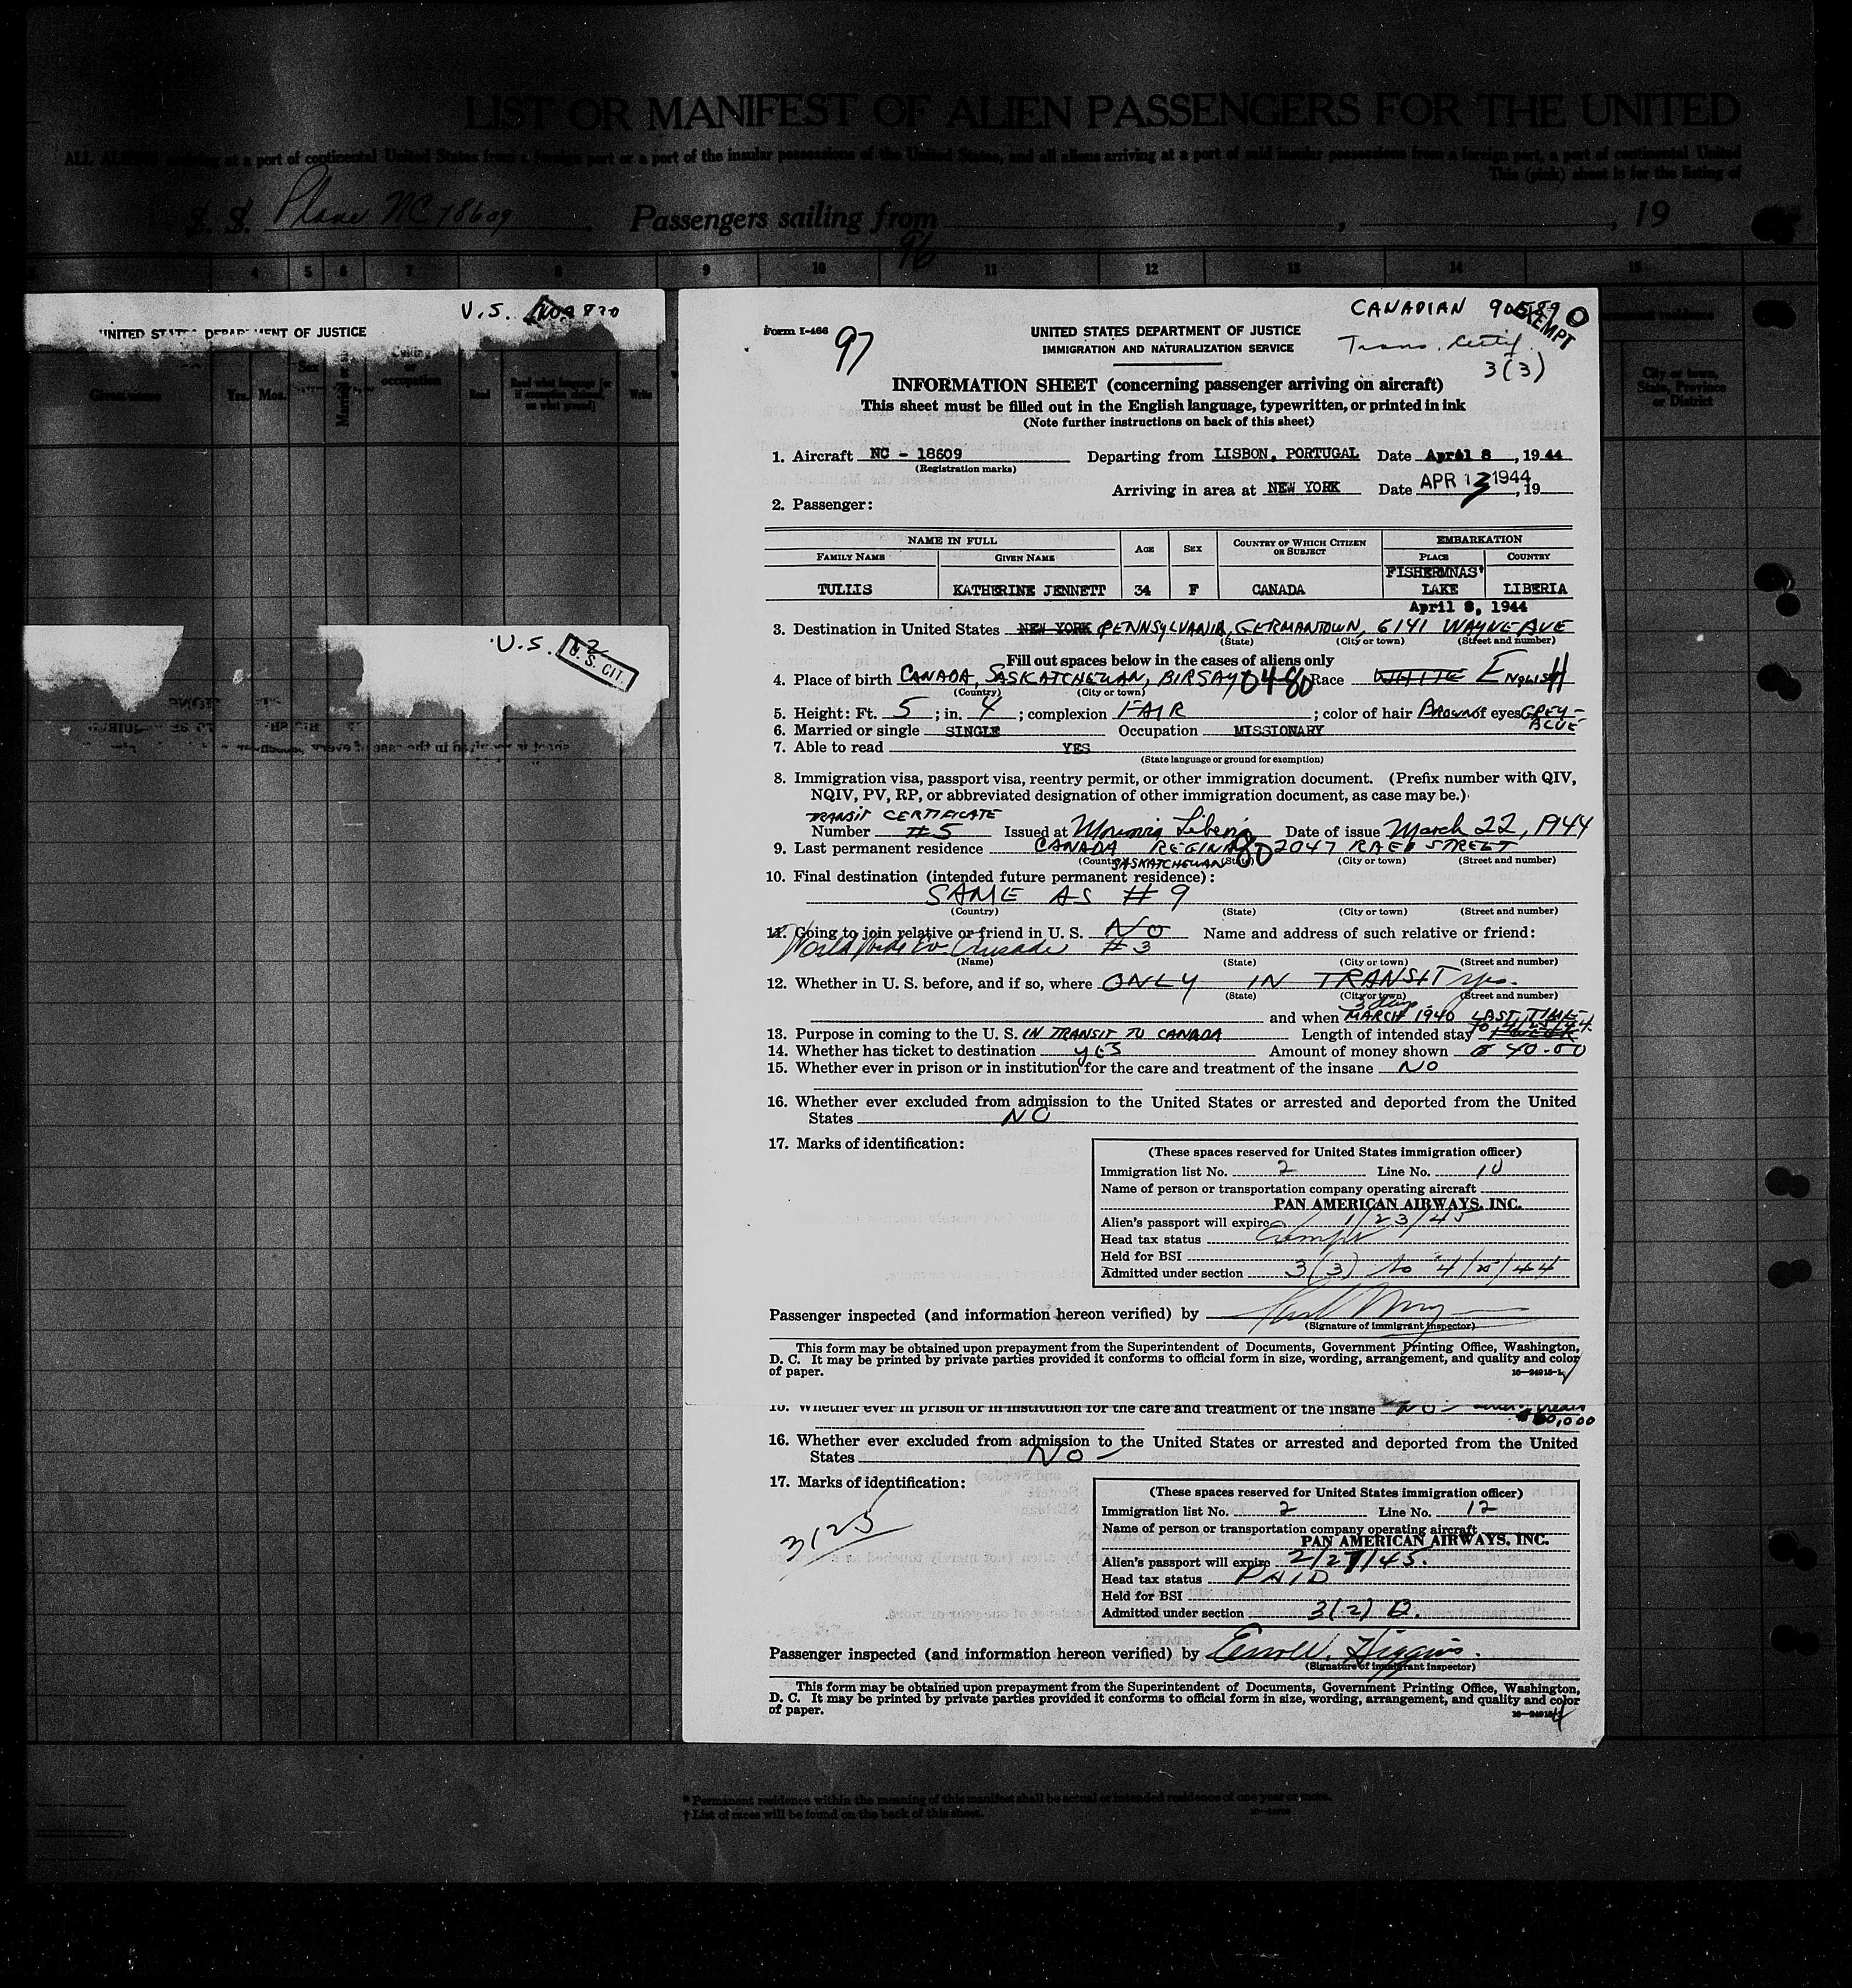 LIST OR MANIFEST OF ALIEN PASSENGERS FOR THE UNITED
ALL ALIENS arriving at a port of continental United States from a foreign port or a port of the insular possessions of the United States, and all aliens arriving at a port of said insular possessions from a foreign port, a port of continental United
This (pink) sheet is for the listing of
S. S. Plane NC 18609 Passengers sailing from , , 19
96
4 5 6 7 8 9 10 11 12 13 14 15
U.S.
UNITED STATES DEPARTMENT OF JUSTICE
Given name Yrs. Mos. Sex Calling or occupation Read Read what language [or if exemption claimed, on what ground] Write
City or town, State, Province or District
U.S.
U. S. CIT.
CANADIAN
EXEMPT
Form I-466
97
UNITED STATES DEPARTMENT OF JUSTICE
IMMIGRATION AND NATURALIZATION SERVICE
Trans. Certif.
3(3)
INFORMATION SHEET (concerning passenger arriving on aircraft)
This sheet must be filled out in the English language, typewritten, or printed in ink
(Note further instructions on back of this sheet)
1. Aircraft NC - 18609 Departing from LISBON, PORTUGAL Date April 8 , 19 44
(Registration marks)
Arriving in area at NEW YORK Date APR 13 1944, 19
2. Passenger:
NAME IN FULL AGE SEX COUNTRY OF WHICH CITIZEN OR SUBJECT EMBARKATION
FAMILY NAME GIVEN NAME PLACE COUNTRY
FISHERMNAS'
TULLIS KATHERINE JENNETT 34 F CANADA LAKE LIBERIA
April 8, 1944
3. Destination in United States NEW YORK PENNSYLVANIA, GERMANTOWN, 6141 WAYNE AVE
(State) (City or town) (Street and number)
Fill out spaces below in the cases of aliens only
4. Place of birth CANADA, SASKATCHEWAN, BIRSAY 0480 Race WHITE ENGLISH
(Country) (City or town)
5. Height: Ft. 5 ; in. 4 ; complexion FAIR ; color of hair BROWN of eyes GREY-BLUE
6. Married or single SINGLE Occupation MISSIONARY
7. Able to read YES
(State language or ground for exemption)
8. Immigration visa, passport visa, reentry permit, or other immigration document. (Prefix number with QIV,
NQIV, PV, RP, or abbreviated designation of other immigration document, as case may be.)
TRANSIT CERTIFICATE
Number #5 Issued at Monrovia Liberia Date of issue March 22, 1944
9. Last permanent residence CANADA REGINA 80 2047 RAE STREET
(Country) SASKATCHEWAN (State) (City or town) (Street and number)
10. Final destination (intended future permanent residence):
SAME AS #9
(Country) (State) (City or town) (Street and number)
11. Going to join relative or friend in U. S. NO Name and address of such relative or friend:
World Wide Ev. Crusade #3
(Name) (State) (City or town) (Street and number)
12. Whether in U. S. before, and if so, where ONLY IN TRANSIT yes.
(State) (City or town) (Street and number)
3 days
and when MARCH 1940 LAST TIME
13. Purpose in coming to the U. S. IN TRANSIT TO CANADA Length of intended stay
14. Whether has ticket to destination YES Amount of money shown $ 40.00
15. Whether ever in prison or in institution for the care and treatment of the insane NO
16. Whether ever excluded from admission to the United States or arrested and deported from the United
States NO
17. Marks of identification:
(These spaces reserved for United States immigration officer)
Immigration list No. 2 Line No. 10
Name of person or transportation company operating aircraft
PAN AMERICAN AIRWAYS, INC.
Alien's passport will expire 1/23/45
Head tax status Exempt
Held for BSI
Admitted under section 3(3) to 4/25/44
Passenger inspected (and information hereon verified) by
(Signature of immigrant inspector)
This form may be obtained upon prepayment from the Superintendent of Documents, Government Printing Office, Washington,
D. C. It may be printed by private parties provided it conforms to official form in size, wording, arrangement, and quality and color
of paper.
15. Whether ever in prison or in institution for the care and treatment of the insane NO
16. Whether ever excluded from admission to the United States or arrested and deported from the United
States NO
17. Marks of identification:
3125
(These spaces reserved for United States immigration officer)
Immigration list No. 2 Line No. 12
Name of person or transportation company operating aircraft
PAN AMERICAN AIRWAYS, INC.
Alien's passport will expire 2/27/45.
Head tax status PAID
Held for BSI
Admitted under section 3(2) B.
Passenger inspected (and information hereon verified) by Higgins.
(Signature of immigrant inspector)
This form may be obtained upon prepayment from the Superintendent of Documents, Government Printing Office, Washington,
D. C. It may be printed by private parties provided it conforms to official form in size, wording, arrangement, and quality and color
of paper.
* Permanent residence within the meaning of this manifest shall be actual or intended residence of one year or more.
† List of races will be found on the back of this sheet.